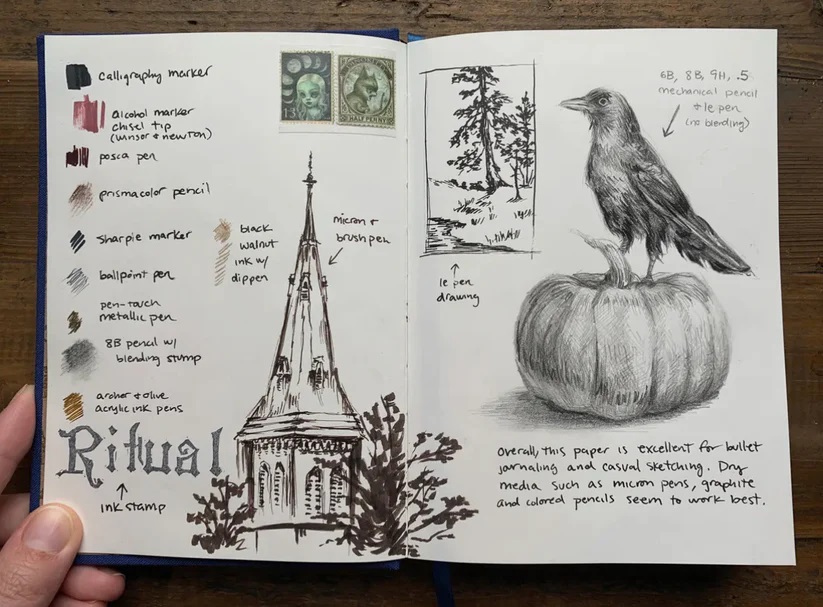 calligraphy marker
alcohol marker
chisel tip
(winsor & newton)
posca pen
prismacolor pencil
Sharpie marker
ballpoint pen
pen-touch
metallic pen
8B pencil w/
blending stump
archer & olive
acrylic ink pens
black
walnut
ink w/
dip pen
micron +
brush pen
Ritual
ink stamp
13
HALF PENNY
le pen
drawing
6B, 8B, 9H, .5
mechanical pencil
& le pen
(no blending)
Overall, this paper is excellent for bullet
jornaling and casual sketching. Dry
media such as micron pens, graphite
and colored pencils seem to work best.